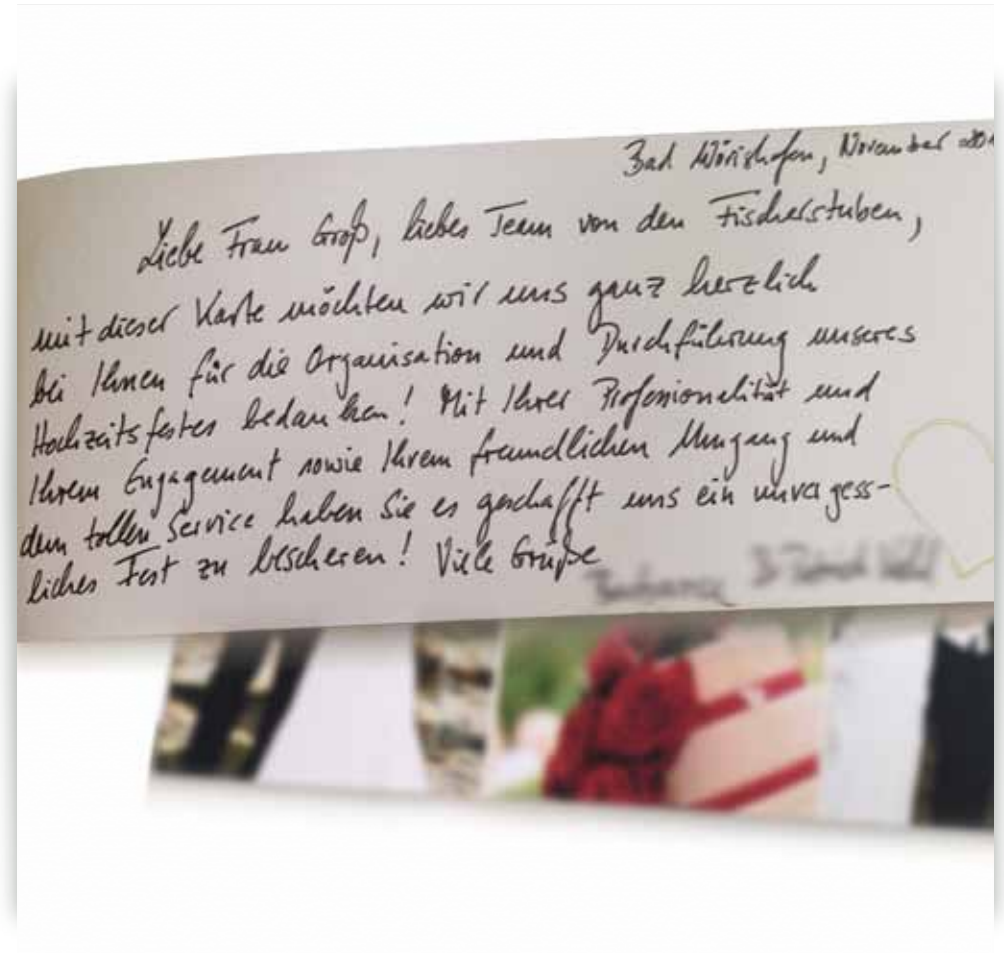 Bad Wörishofen, November 201
Liebe Frau Groß, liebes Team von den Fischerstuben,
mit dieser Karte möchten wir uns ganz herzlich
bei Ihnen für die Organisation und Durchführung unseres
Hochzeitsfestes bedanken! Mit Ihrer Professionalität und
Ihrem Engagement sowie Ihrem freundlichen Umgang und
dem tollen Service haben Sie es geschafft uns ein unvergess-
liches Fest zu bescheren! Viele Grüße